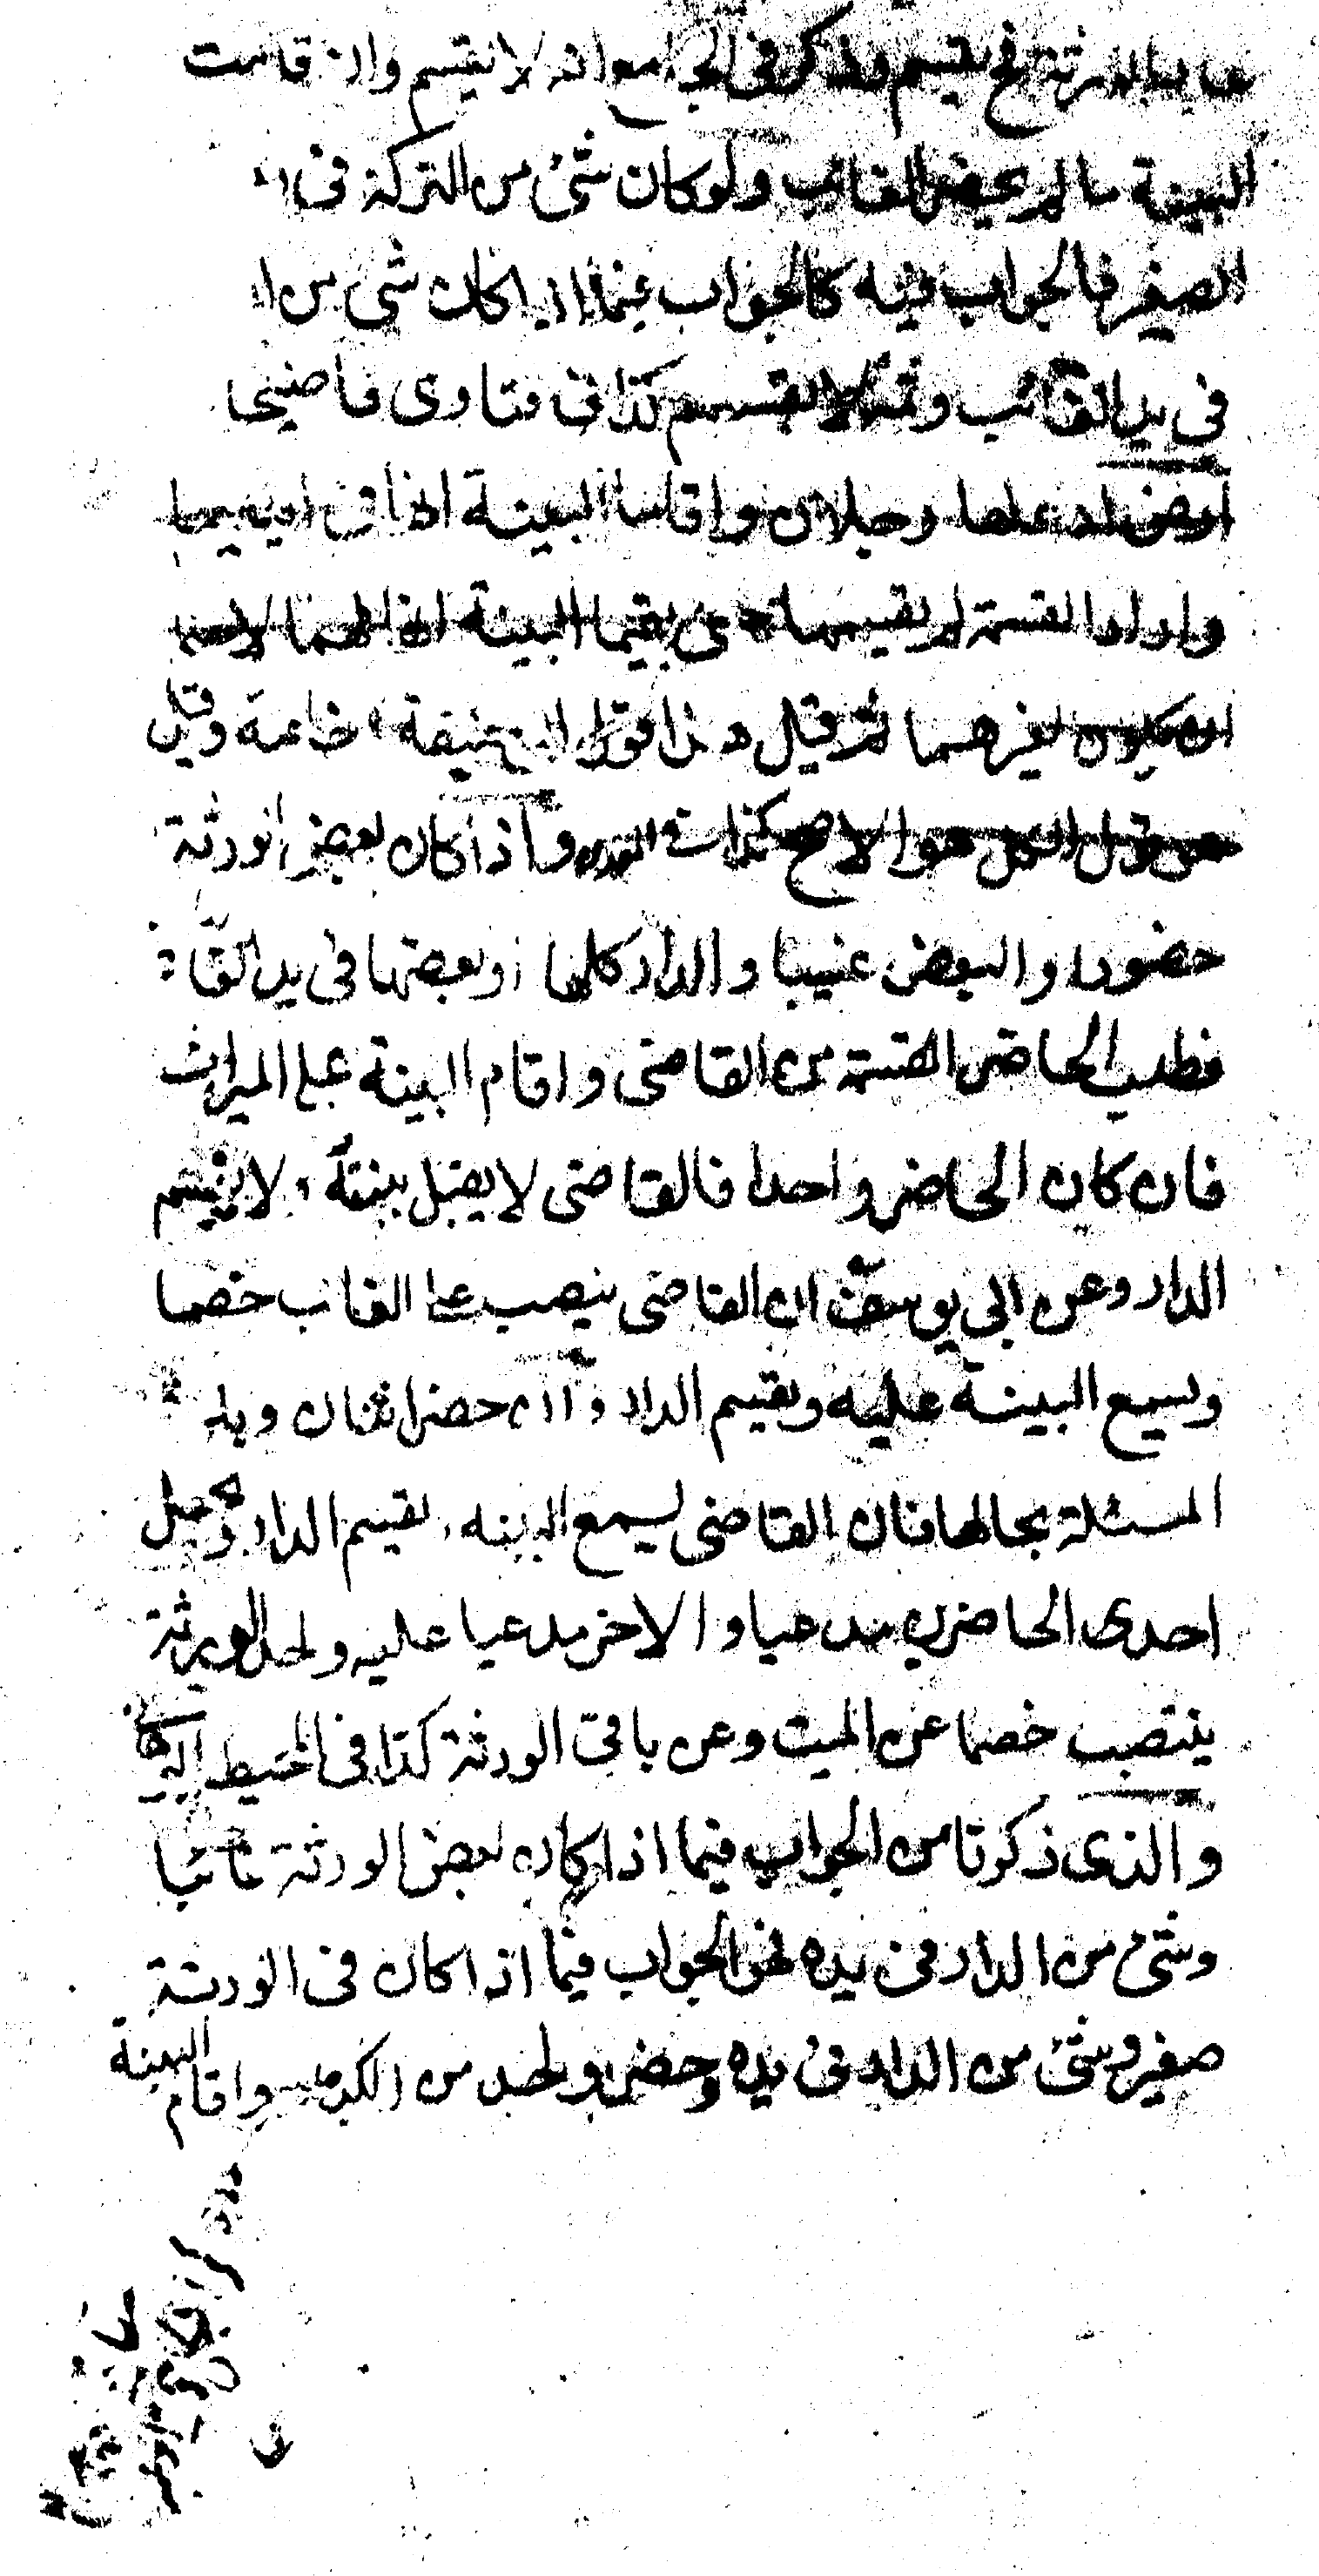 يقسم وذكر في الجامع انه لا يقسم وان قامت
البينة ما لم يحضر الغائب ولو كان شئ من التركة في
الصغير فالجواب فيه كالجواب فيما اذا كان شئ من
في يد الغائب وثمه لا يقسم كذا في فتاوى قاضيخان
ارض ادعاها رجلان واقاما البينة انها في ايديهما
وارادا القسمة لم يقسمها حتى يقيما البينة انها لهما لاحتمال
ان يكون لغيرهما ثم قيل هذا قول ابي حنيفة خاصة وقيل
هو قول الكل هو الاصح كذا في واذا كان بعض الورثة
حضورا والبعض غيبا والدار كلها او بعضها في يد الغا
فطلب الحاضر القسمة من القاضي واقام البينة على الميراث
فان كان الحاضر واحدا فالقاضي لا يقبل بينته ولا يقسم
الدار وعن ابي يوسف ان القاضي ينصب عن الغائب خصما
ويسمع البينة عليه ويقسم الدار وان حضر اثنان وباقي
المسئلة بحالها فان القاضي يسمع البينه ويقسم الدار وجعل
احدى الحاضرين مدعيا والاخر مدعيا عليه واحد الورثة
ينتصب خصما عن الميت وعن باقي الورثة كذا في المحيط
والذى ذكرنا من الجواب فيما اذا كان بعض الورثة غائبا
وشئ من الدار في يده فهو الجواب فيما اذا كان في الورثة
صغير وشئ من الدار في يده وحضر واحد من الكبار واقام البينة